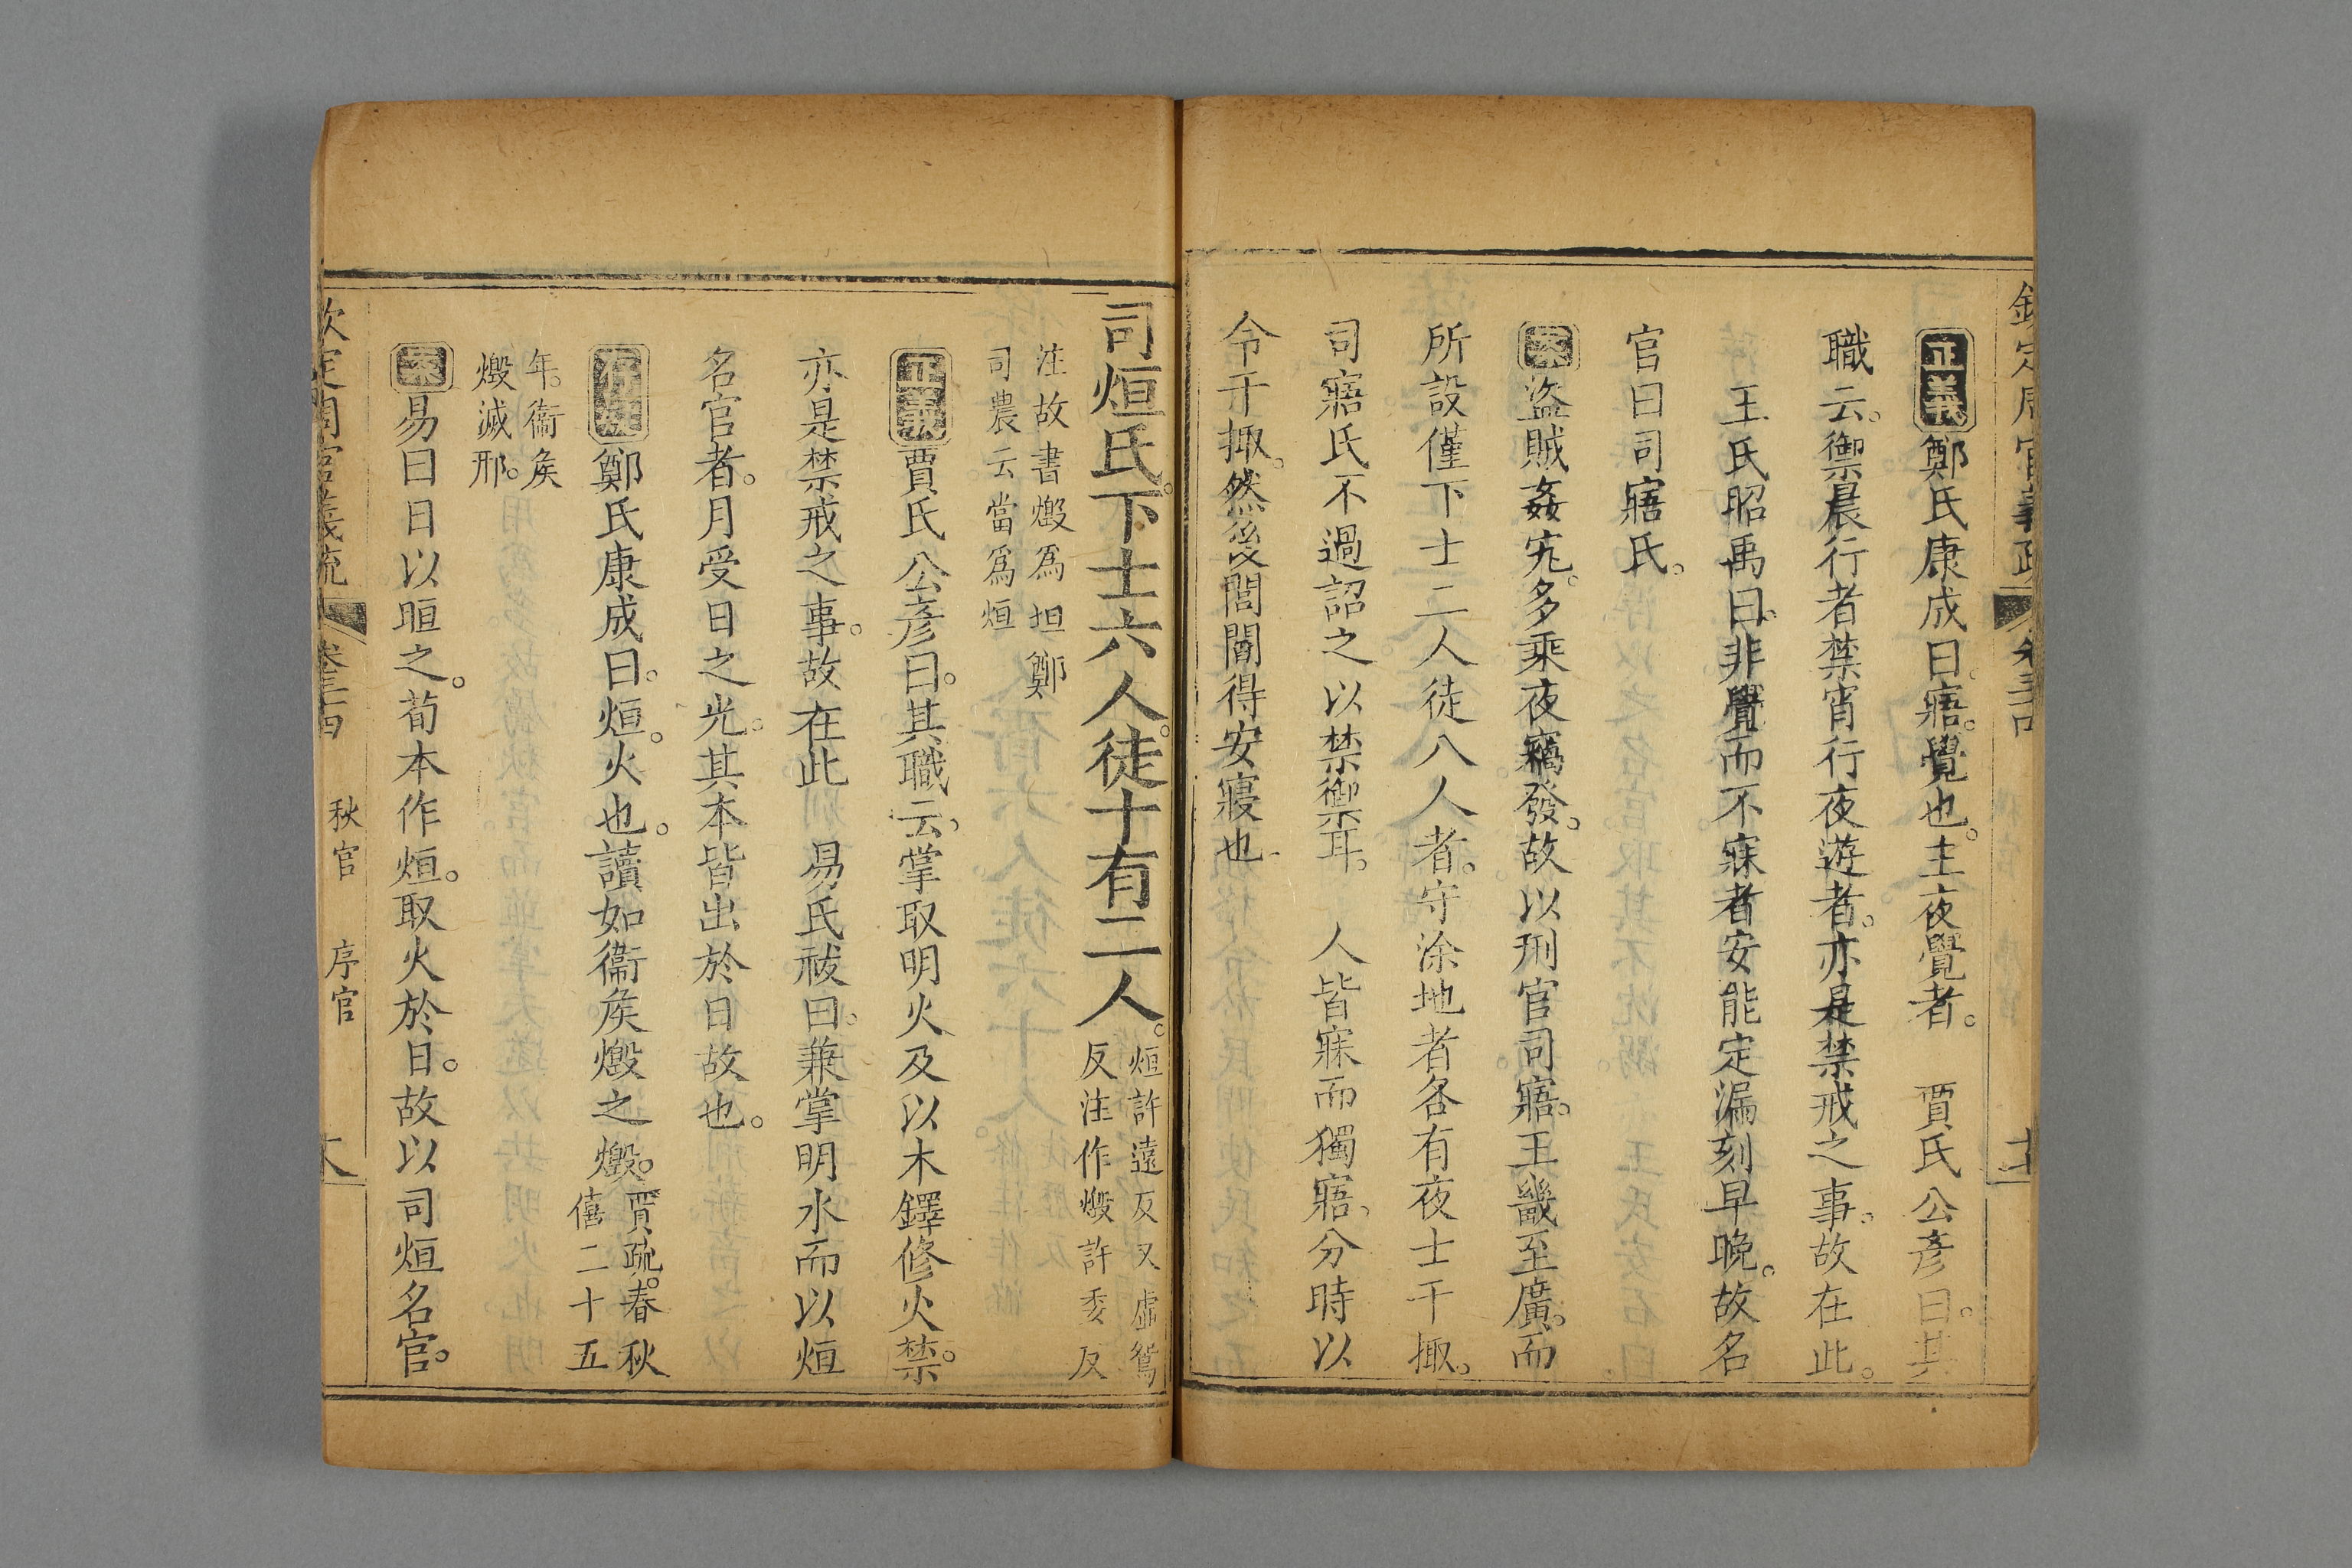 正義鄭氏康成曰。寤。覺也。主夜覺者。　賈氏公彥曰。其
職云。禦晨行者禁宵行夜遊者。亦是禁戒之事。故在此。
王氏昭禹曰。非覺而不寐者安能定漏刻早晚。故名
官曰司寤氏。
案盜賊姦宄。多乘夜竊發。故以刑官司寤。王畿至廣。而
所設僅下士二人徒八人者。守涂地者各有夜士干掫。
司寤氏不過詔之以禁禦耳。　人皆寐而獨寤。分時以
令干掫。然後閭閻得安寢也
司烜氏。下士六人。徒十有二人。烜許遠反又虛鴛
反注作燬許委反
注故書燬爲垣鄭
司農云當爲烜
正義賈氏公彥曰。其職云。掌取明火及以木鐸修火禁。
亦是禁戒之事。故在此　易氏祓曰。兼掌明水而以烜
名官者。月受日之光。其本皆出於日故也。
鄭氏康成曰。烜。火也。讀如衞矦燬之燬。賈疏。春秋
僖二十五
年。衞矦
燬滅邢。
案易曰日以晅之。荀本作烜。取火於日。故以司烜名官。
欽定周官義疏　卷三十四　秋官　序官